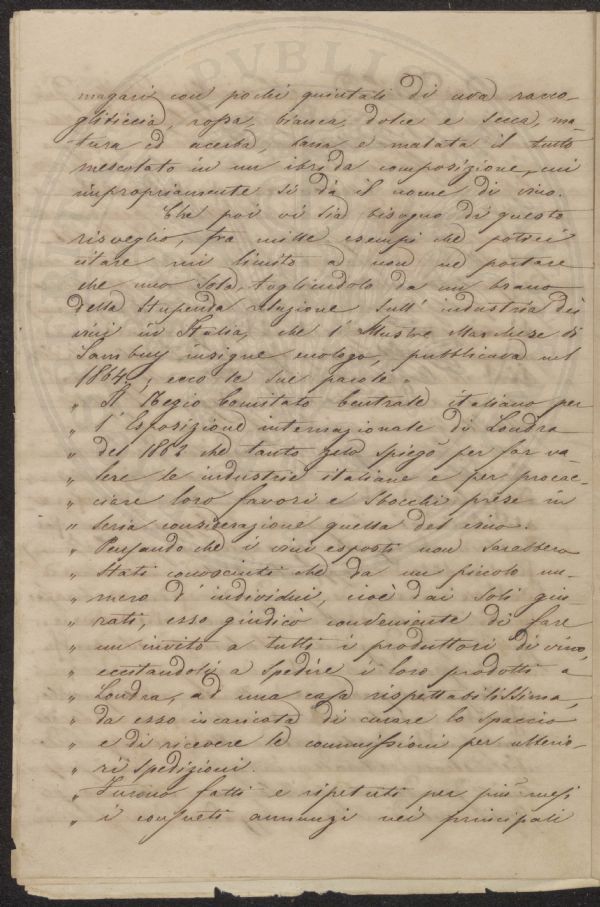 magari con pochi quintali di uva racco-
gliticcia, rossa, bianca, dolce e secca, ma-
tura ed acerba, sana e malata il tutto
mescolato in un ibrida composizione, cui
impropriamente si dà il nome di vino.
Che poi vi sia bisogno di questo
risveglio, fra mille esempi che potrei
citare mi limito a non ne portare
che uno solo togliendolo da un brano
della stupenda relazione sull' industria dei
vini in Italia, che l' Illustre Marchese di
Sambuy insigne enologo, pubblicava nel
1864; ecco le sue parole.
" Il Regio Comitato Centrale italiano per
" l' Esposizione internazionale di Londra
" del 1862 che tanto zelo spiegò per far va-
" lere le industrie italiane e per procac-
" ciare loro favori e sbocchi prese in
" seria considerazione quella del vino.
" Pensando che i vini esposti non sarebbero
" stati conosciuti che da un piccolo nu-
" mero d' individui, cioè dai soli giu
" rati, esso giudicò conveniente di fare
" un invito a tutti i produttori di vino,
" eccitandoli a spedire i loro prodotti a
" Londra, ad una casa rispettabilissima,
" da esso incaricata di curare lo spaccio
" e di ricevere le commissioni per ulterio-
" ri spedizioni.
" Furono fatti e ripetuti per più mesi
" i consueti annunzi nei principali